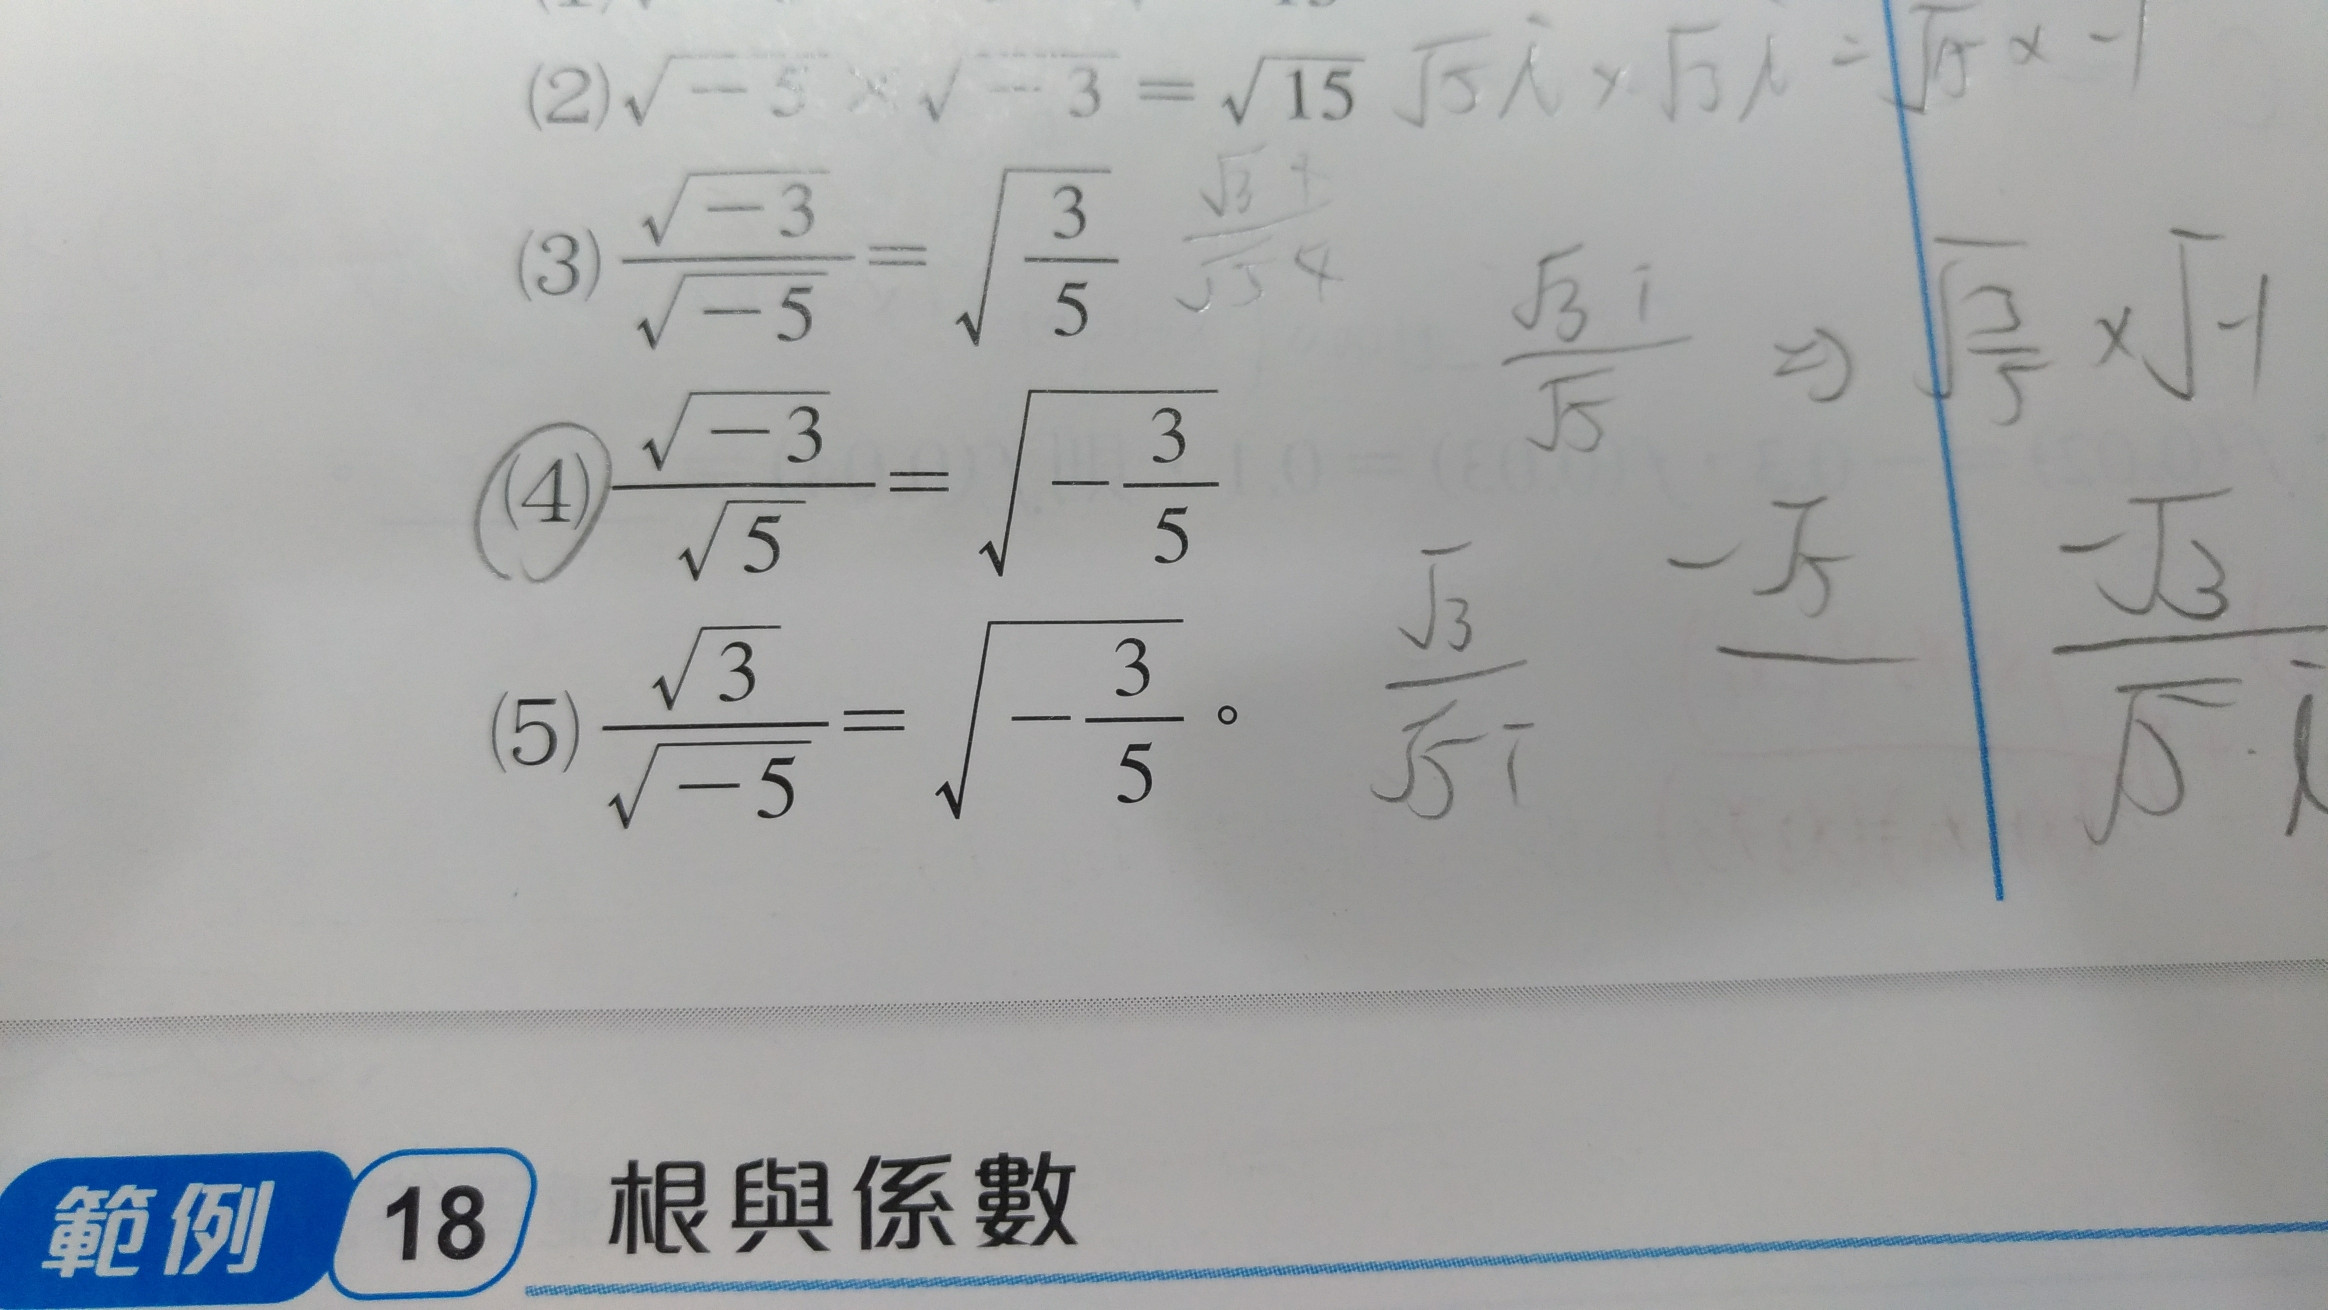 (2) √-5 × √-3 = √15 √5 i × √3 i = √15 × -1
(3) √-3 / √-5 = √(3/5)
√3 i / √5 ⇒ √(3/5) × √-1
(4) √-3 / √5 = √(-3/5)
(5) √3 / √-5 = √(-3/5)。 √3 / √5 i -√5 -√3 / √5 · i
範例 18 根與係數